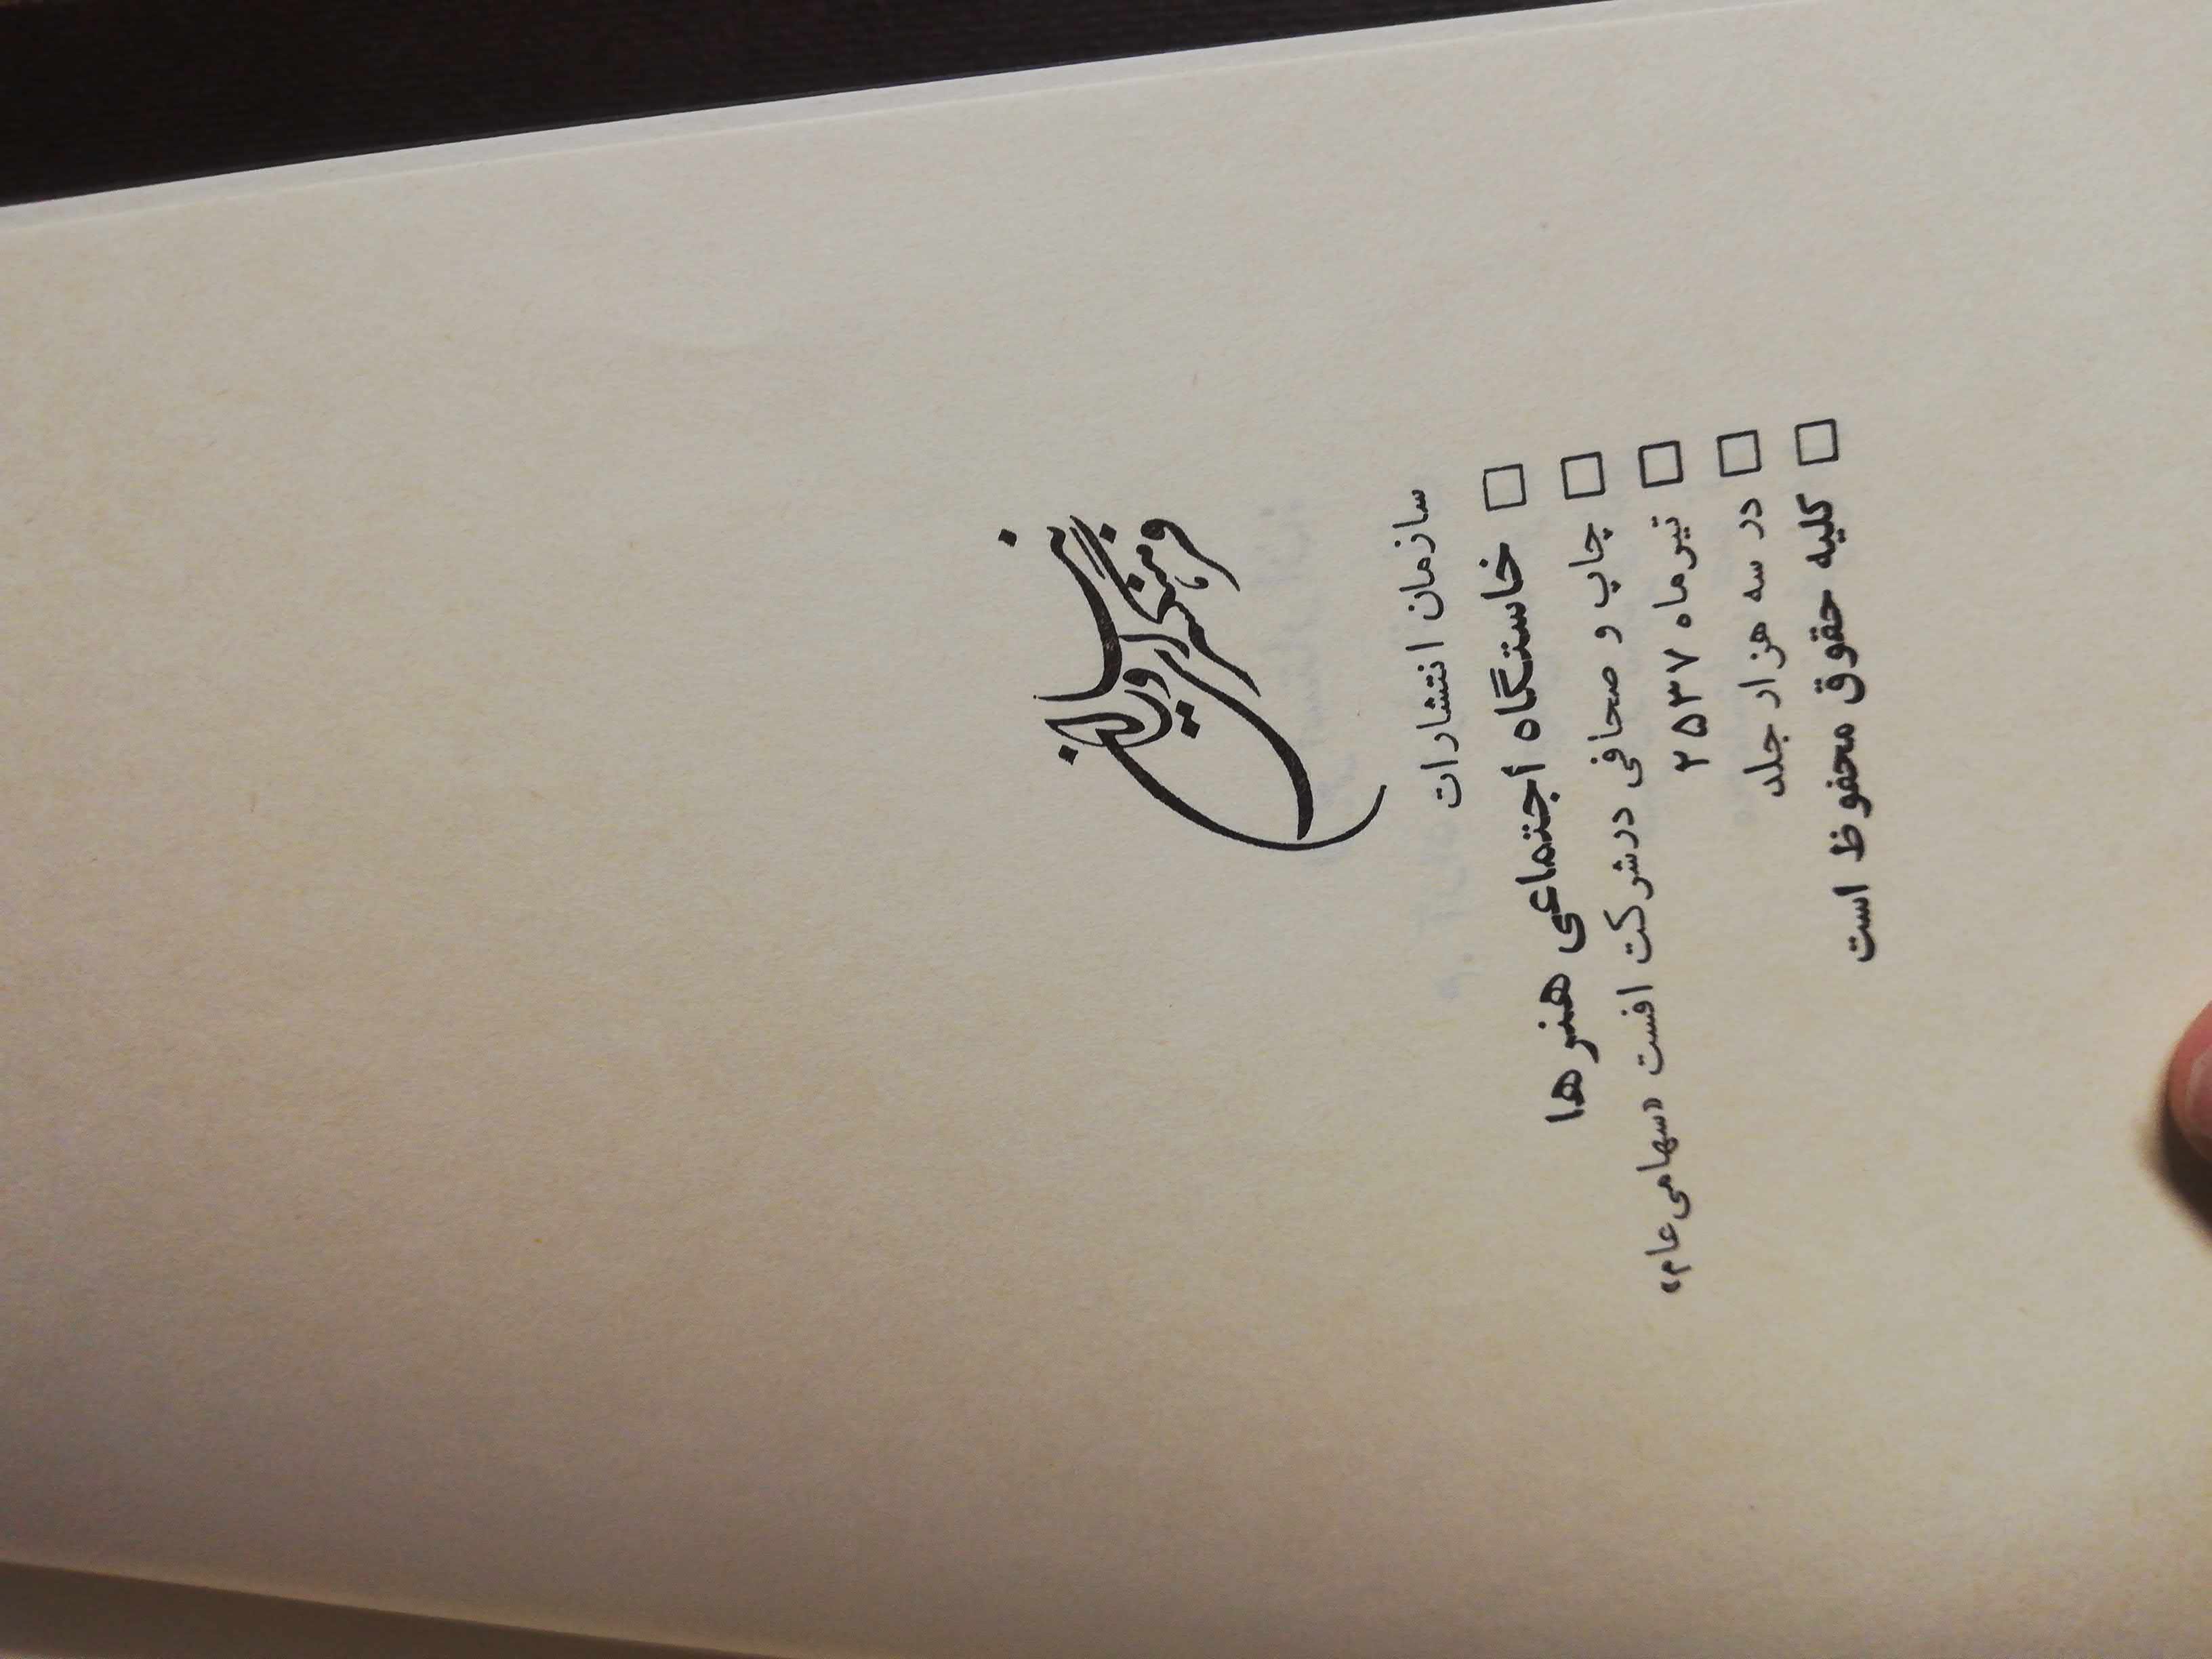 سازمان انتشارات
□ خاستگاه اجتماعی هنرها
□ چاپ و صحافی در شرکت افست «سهامی عام»
□ تیرماه ۲۵۳۷
□ در سه هزار جلد
□ کلیه حقوق محفوظ است